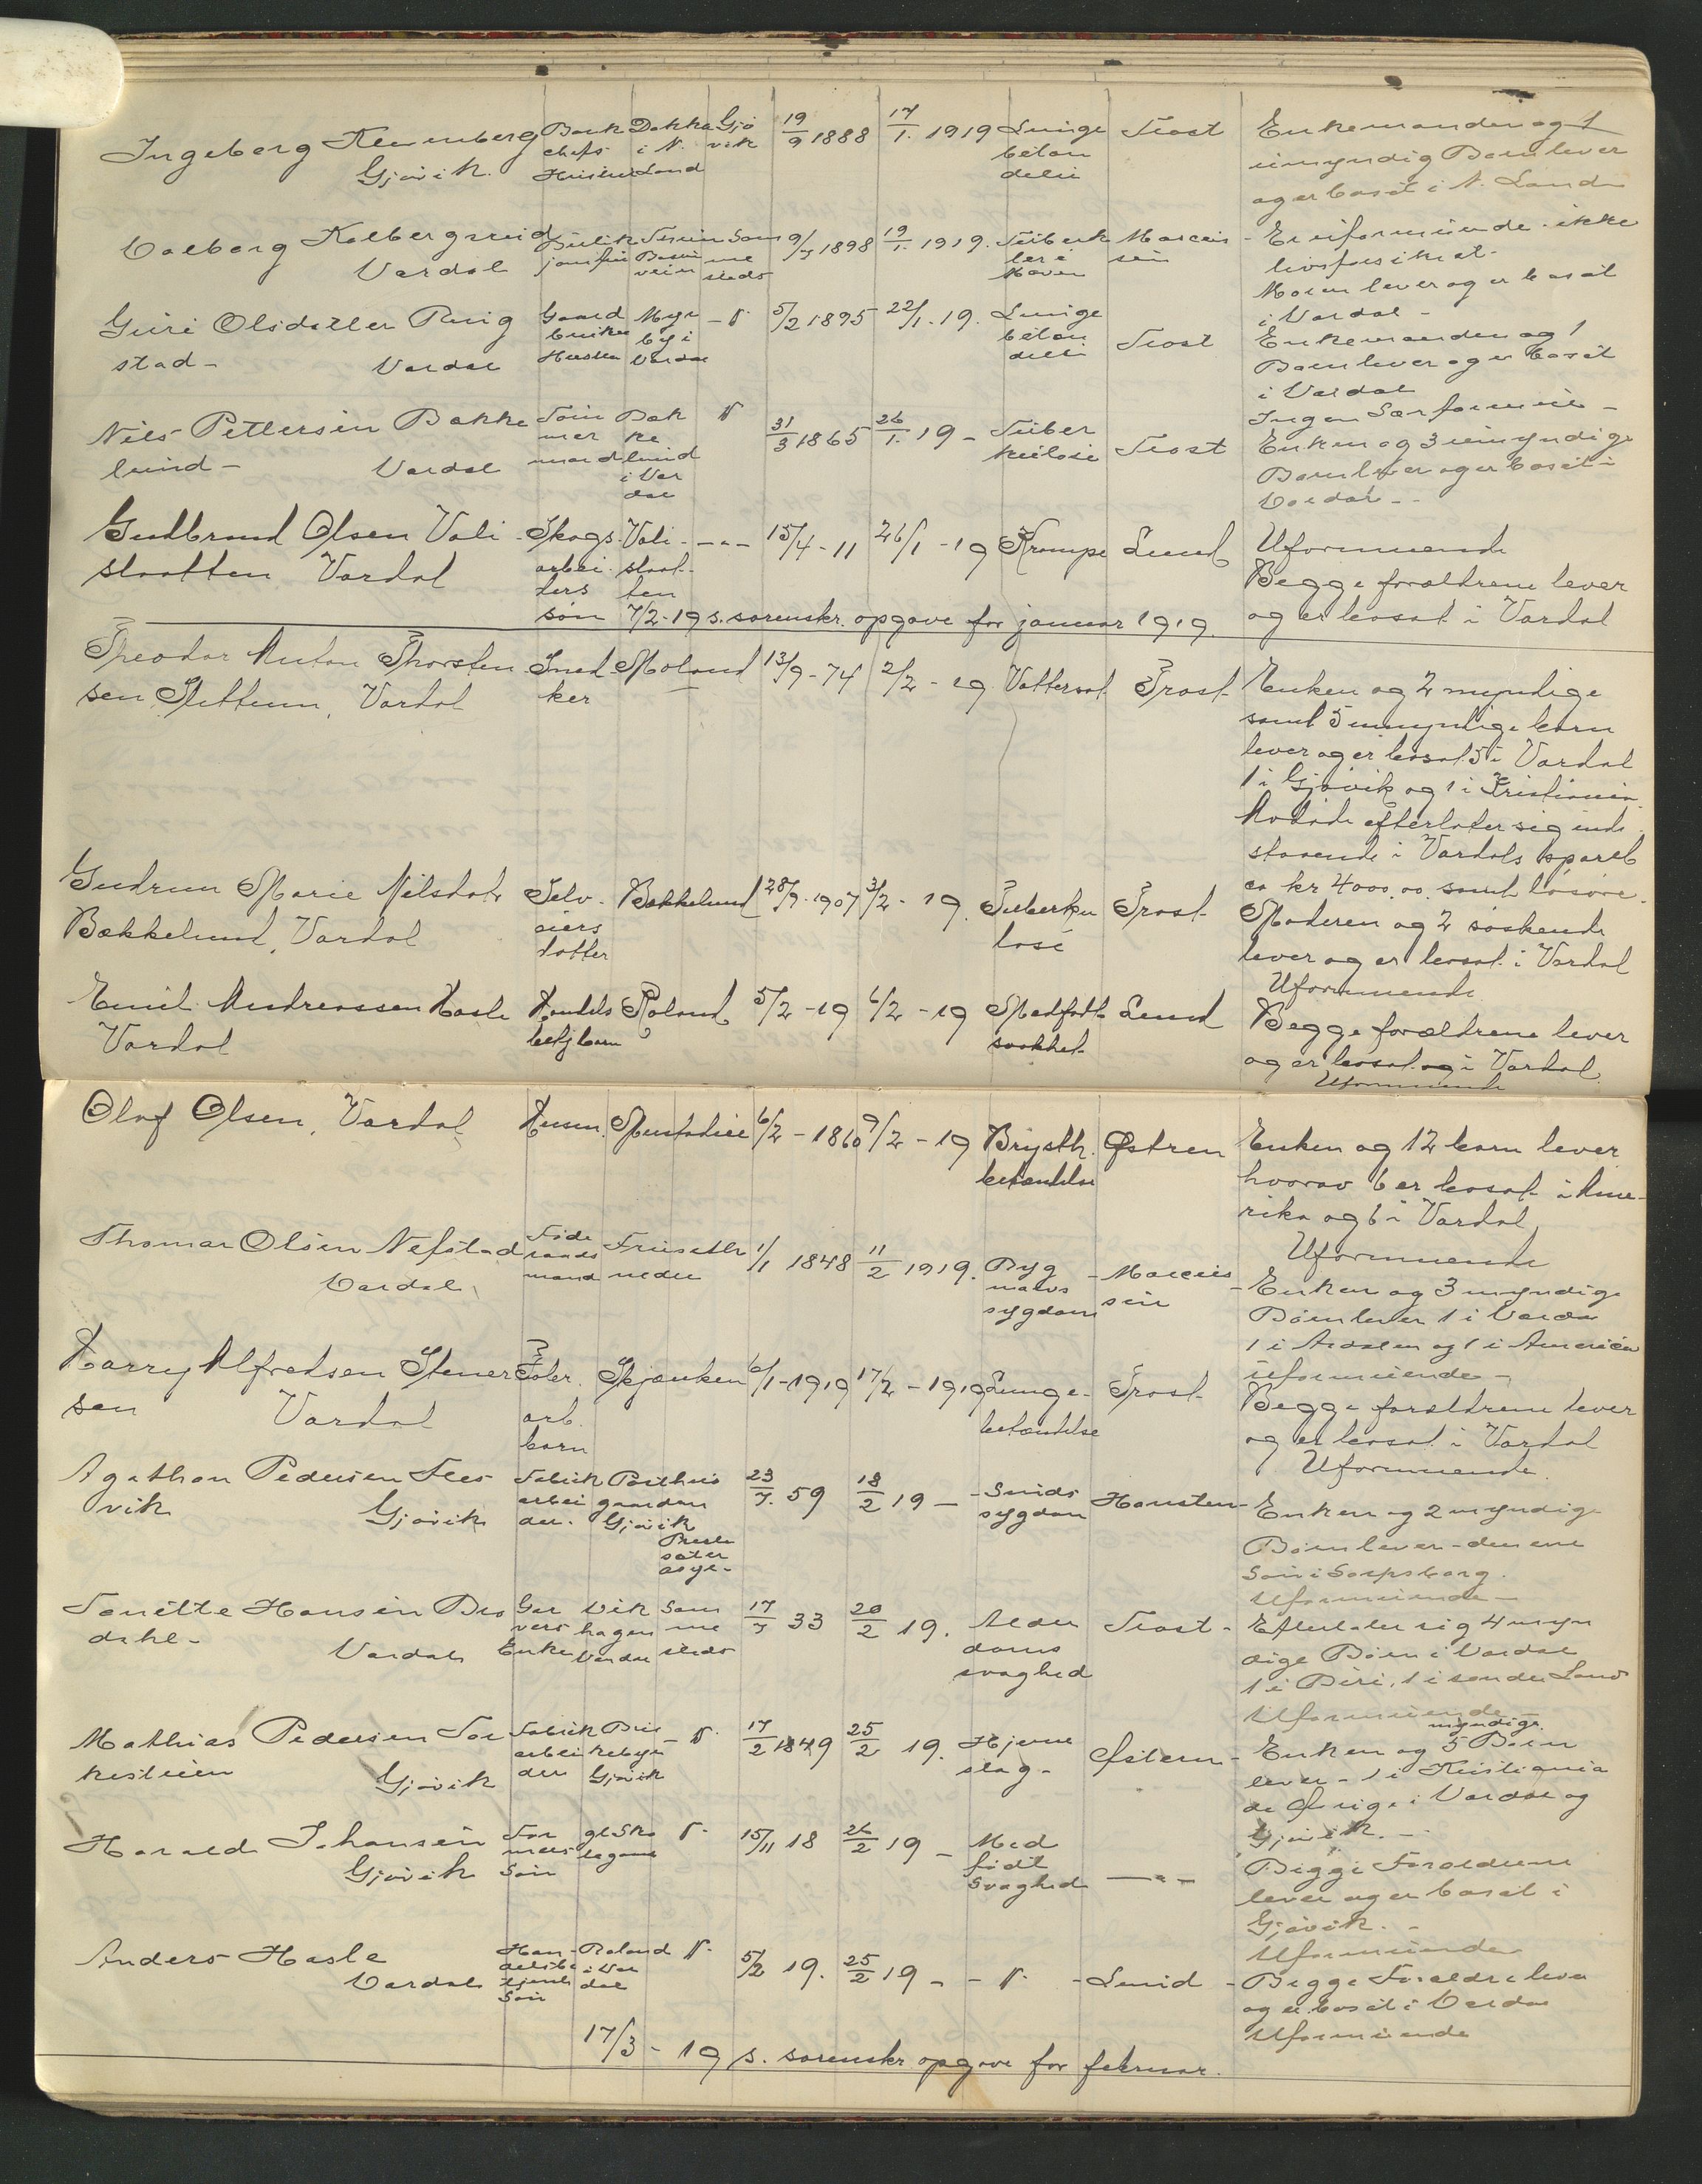 Ingeborg Gjøvik. Bank chefs Dokka i N. Land Gjø vik 19/9 1888 17/1. 1919 Lunge betæn delse Trost Enkemanden og 1 umyndig Barn lever og er bosat i N. Land
Valborg Vardal Sam me steds 9/7 1898 19/1. 1919. Tuberk ler i Marcus sen Er uformuende. ikke livsforsikret. Moren lever og er bosat i Vardal -
Guri Olsdatter Rog stad - Vardal Gaard bruker Myr by i Vardal - " 5/2 1895 22/1. 19. Lunge betæn delse Trost Enkemanden og 1 Barn lever og er bosat i Vardal
Nils Pettersen Bække lund - Vardal Tøm mer mand Bæk ke lund i Var dal " 31/3 1865 26/1. 19 - Tuber kulose Trost Ingen Særformue - Enken og 3 umyndige Barn lever og er bosat i Vardal - -
Gudbrand Olsen Vali slaatten Vardal Skogs arbei ders søn Vali slaat ten -"- 15/4 - 11 26/1 - 19 Krampe Lund Uformuende Begge forældrene lever og er bosat i Vardal
7/2-19 s. sorenskr. opgave for januar 1919.
Theodor Anton Thorsten sen Stettum, Vardal Sned ker Moland 13/9 - 74 2/2 - 19 Vattersot Trost Enken og 2 myndige samt 5 umyndige barn lever og er bosat 5 i Vardal 1 i Gjøvik og 1 i Kristiania. Avdøde efterlater sig inde staaende i Vardals spareb ca kr 4000,00 samt løsøre.
Gudrun Marie Nilsdatr Bækkelund, Vardal Selv eiers datter Bækkelund 28/9-1907 3/2 - 19. Tuberku lose Trost Moderen og 2 søskende lever og er bosat i Vardal Uformuende
Emil Andreassen Hasle Vardal Handels betj barn Roland 5/2 - 19 6/2 - 19 Medfødt svakhet Lund Begge forældrene lever og er bosat og i Vardal Uformuende
Olaf Olsen, Vardal Husm. 6/2 - 1860 9/2 - 19 Brysth. betændelse Østren Enken og 12 barn lever hvorav 6 er bosat i Ame- rika og 6 i Vardal Uformuende
Thomas Olsen Nefstad Vardal Føde raads mand nedre 1/1 1848 11/2 1919. Ryg marvs sygdom - Marcus sen - Enken og 3 myndige Børn lever 1 i Vardal 1 i og 1 i America uformuende -
Harry Alfredsen Stener sen Vardal Fabr. arb. barn Skjønken 6/1-1919 17/2 - 1919 Lunge- betændelse Trost Begge forældrene lever og er bosat i Vardal Uformuende.
Agathon Pedersen Fees vik Gjøvik Fabrik arbei der. gaarden Gjøvik 23/7. 59 18/2 19 - - Sinds sygdom Hansten - Enken og 2 myndige Børn lever - den ene Søn i Sarpsborg. Uformuende -
Hansen Bro dahl - Vardal Gar vers Enke Vik hagen Vardal Sam me steds 17/7 33 20/2 19. Alder doms svaghed Trost - Efterlater sig 4 myn dige Børn i Vardal 1 i Biri, 1 i søndre Land Uformuende -
Mathias Pedersen Gjøvik Fabrik arbei der Bris kebyen Gjøvik - " 17/2 1849 25/2 19. Hjerne slag - Østern - Enken og 5 myndige Børn lever - 1 i Kristiania de Øvrige i Vardal og Gjøvik. -
Harald Johansen Gjøvik Søn " 15/11 18 26/2 19 - Med født Svaghed -"- Begge Forældrene lever og er bosat i Gjøvik. - Uformuende
Anders Hasle Vardal Han- delsbe tjents Søn Roland i Var dal " 5/2 19. 25/2 19 - - " - - Lund - Begge Forældre lever og er bosat i Vardal Uformuende
17/3 - 19 s. sorenskr opgave for februar.